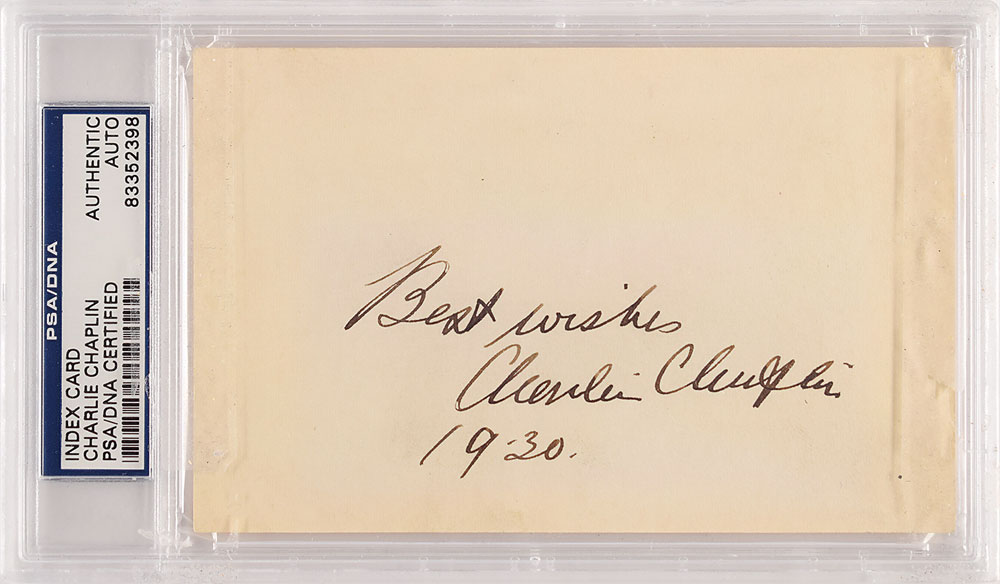 PSA/DNA
INDEX CARD
CHARLIE CHAPLIN
PSA/DNA CERTIFIED
AUTHENTIC
AUTO
83352398
Best wishes
Charlie Chaplin
1930.